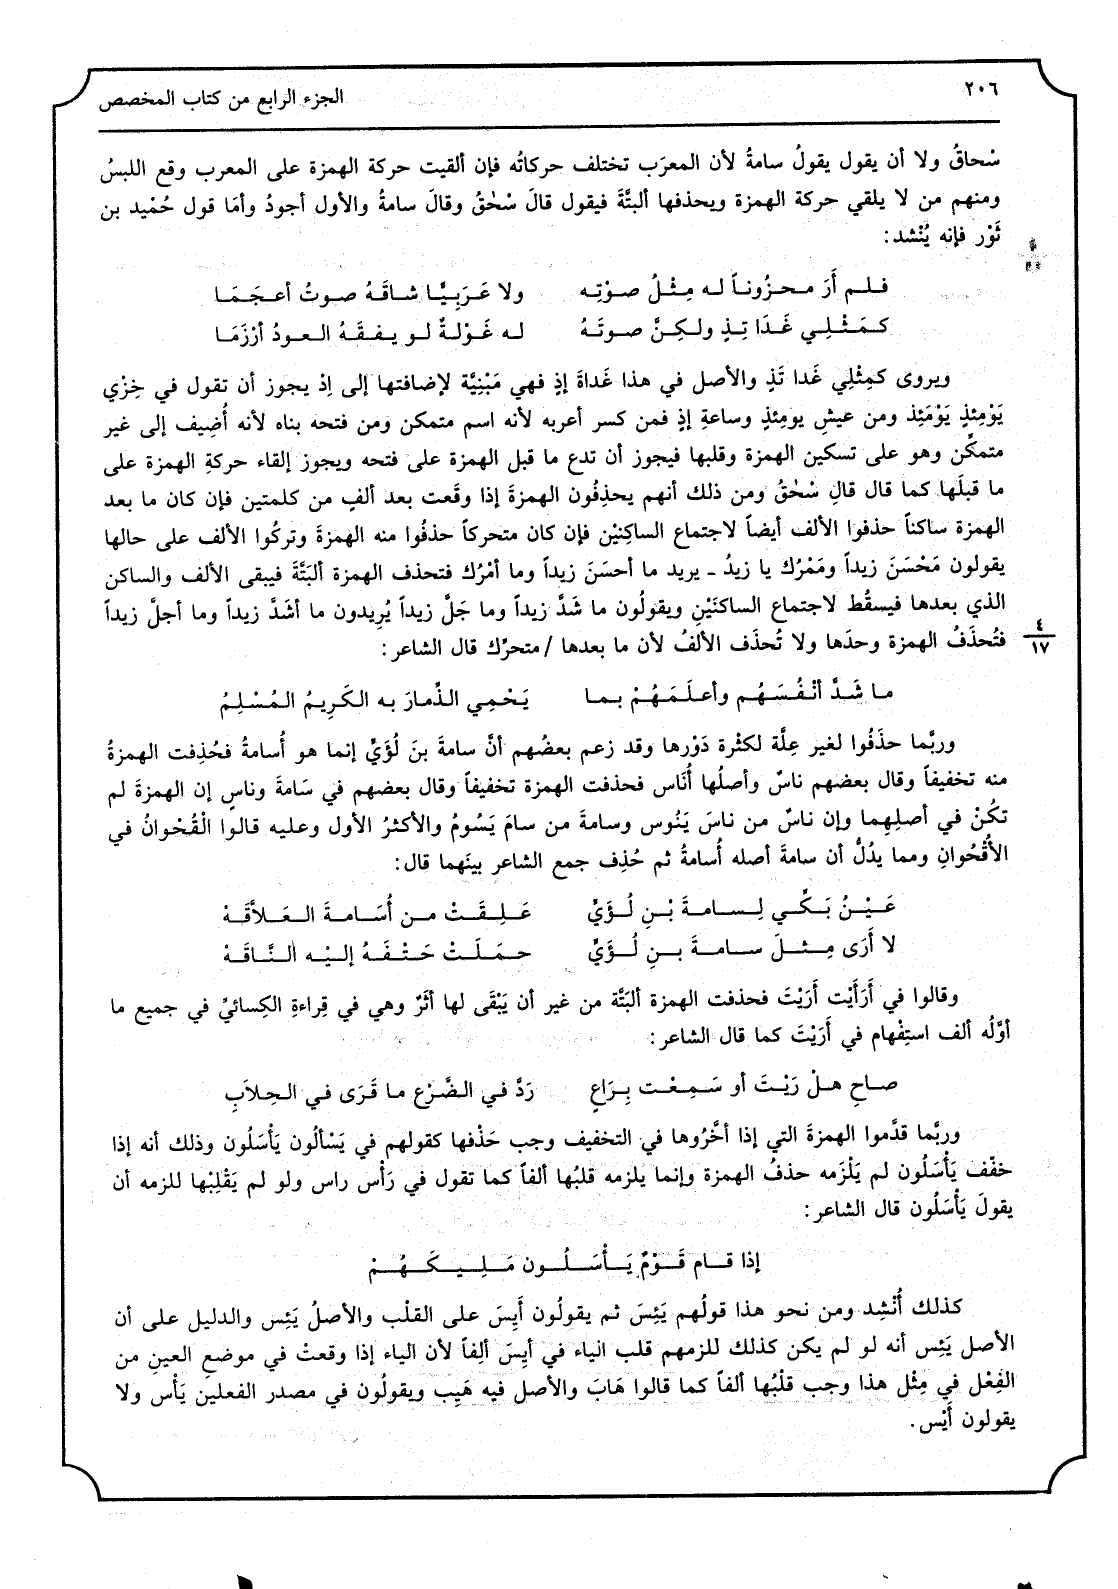 ٢٠٦
الجزء الرابع من كتاب المخصص
سْحاقُ ولا أن يقول يقولُ سامةُ لأن المعرَب تختلف حركاتُه فإن ألقيت حركة الهمزة على المعرب وقع اللبسُ
ومنهم من لا يلقي حركة الهمزة ويحذفها ألبتَّةَ فيقول قالَ سْحٰقُ وقالَ سامةُ والأول أجودُ وأمَا قول حُمْيد بن
ثَوْر فإنه يُنْشد:
فلم أَرَ محزُوناً له مِثْلُ صوْتِه ولا عَرَبِيًّا شاقَهُ صوتُ أعجَمَا
كمَثْلِي غَدَا تِذٍ ولكِنَّ صوتَهُ له غَوْلةٌ لو يفقَهُ العودُ أرْزَمَا
ويروى كمِثْلِي غَدا تَذٍ والأصل في هذا غَداةَ إذٍ فهي مَبْنِيَّة لإضافتها إلى إذْ يجوز أن تقول في خِزْي
يَوْمِئذٍ يَوْمَئِذ ومن عيشِ يومِئذٍ وساعةِ إذٍ فمن كسر أعربه لأنه اسم متمكن ومن فتحه بناه لأنه أُضِيف إلى غير
متمكِّن وهو على تسكين الهمزة وقلبها فيجوز أن تدع ما قبل الهمزة على فتحه ويجوز إلقاء حركةِ الهمزة على
ما قبلَها كما قال قالِ سْحٰقُ ومن ذلك أنهم يحذِفُون الهمزةَ إذا وقَعت بعد ألفٍ من كلمتين فإن كان ما بعد
الهمزة ساكناً حذفوا الألف أيضاً لاجتماع الساكِنيْن فإن كان متحركاً حذفُوا منه الهمزةَ وتركُوا الألف على حالها
يقولون مَحْسَنَ زيداً ومَمْرُك يا زيدُ ـ يريد ما أحسَنَ زيداً وما أمْرُك فتحذف الهمزة ألبَتَّةَ فيبقى الألف والساكن
الذي بعدها فيسقُط لاجتماع الساكنَيْنِ ويقولُون ما شَدَّ زيداً وما جَلَّ زيداً يُرِيدون ما أشَدَّ زيداً وما أجلَّ زيداً
فتُحذَفُ الهمزة وحدَها ولا تُحذَف الألفُ لأن ما بعدها / متحرِّك قال الشاعر:
٤
١٧
ما شَدَّ أنْفُسَهُم وأعلَمَهُمْ بما يَحْمِي الذِّمارَ به الكَرِيمُ المُسْلِمُ
وربَّما حذَفُوا لغير عِلَّة لكثْرة دَوْرها وقد زعم بعضُهم أنَّ سامةَ بنَ لُؤَيٍّ إنما هو أُسامةُ فحُذِفت الهمزةُ
منه تخفيفاً وقال بعضهم ناسٌ وأصلُها أُنَاس فحذفت الهمزة تخفيفاً وقال بعضهم في سَامةَ وناسٍ إن الهمزةَ لم
تكُنْ في أصلِهِما وإن ناسٌ من ناسَ يَنُوس وسامةَ من سامَ يَسُومُ والأكثرُ الأول وعليه قالوا الْقُحْوانُ في
الأُقْحُوانِ ومما يدُلُّ أن سامةَ أصله أُسامةُ ثم حُذِف جمع الشاعر بينَهما قال:
عَيْنُ بَكِّي لِسامةَ بْنِ لُؤَيٍّ عَلِقَتْ من أُسَامةَ العَلاَّقَهْ
لا أَرَى مِثلَ سامةَ بنِ لُؤَيٍّ حمَلَتْ حَتْفَهُ إليْه النَّاقَهْ
وقالوا في أَرَأَيْت أَرَيْتَ فحذفت الهمزة ألبَتَّة من غير أن يَبْقَى لها أثَرٌ وهي في قِراءةِ الكِسائيِّ في جميع ما
أوَّلُه ألف استِفْهام في أَرَيْتَ كما قال الشاعر:
صاحِ هلْ رَيْتَ أو سَمِعْت بِرَاعٍ رَدَّ في الضَّرْع ما قَرَى في الحِلاَبِ
وربَّما قدَّموا الهمزةَ التي إذا أخَّرُوها في التخفيف وجب حَذْفها كقولهم في يَسْألُون يَأْسَلُون وذلك أنه إذا
خفّف يَأْسَلُون لم يَلْزَمه حذفُ الهمزة وإنما يلزمه قلبُها ألفاً كما تقول في رَأْس راس ولو لم يَقْلِبْها للزمه أن
يقولَ يَأْسَلُون قال الشاعر:
إذا قام قَوْمٌ يَأْسَلُون مَلِيكَهُمْ
كذلك أُنْشِد ومن نحو هذا قولُهم يَئِسَ ثم يقولُون أَيِسَ على القلْب والأصلُ يَئِس والدليل على أن
الأصل يَئِس أنه لو لم يكن كذلك للزمهم قلب الياء في أَيِسَ ألِفاً لأن الياء إذا وقعتْ في موضعِ العينِ من
الفِعْل في مِثْل هذا وجب قلْبُها ألفاً كما قالوا هَابَ والأصل فيه هَيِب ويقولُون في مصدر الفعلين يَأْس ولا
يقولون أَيْس.